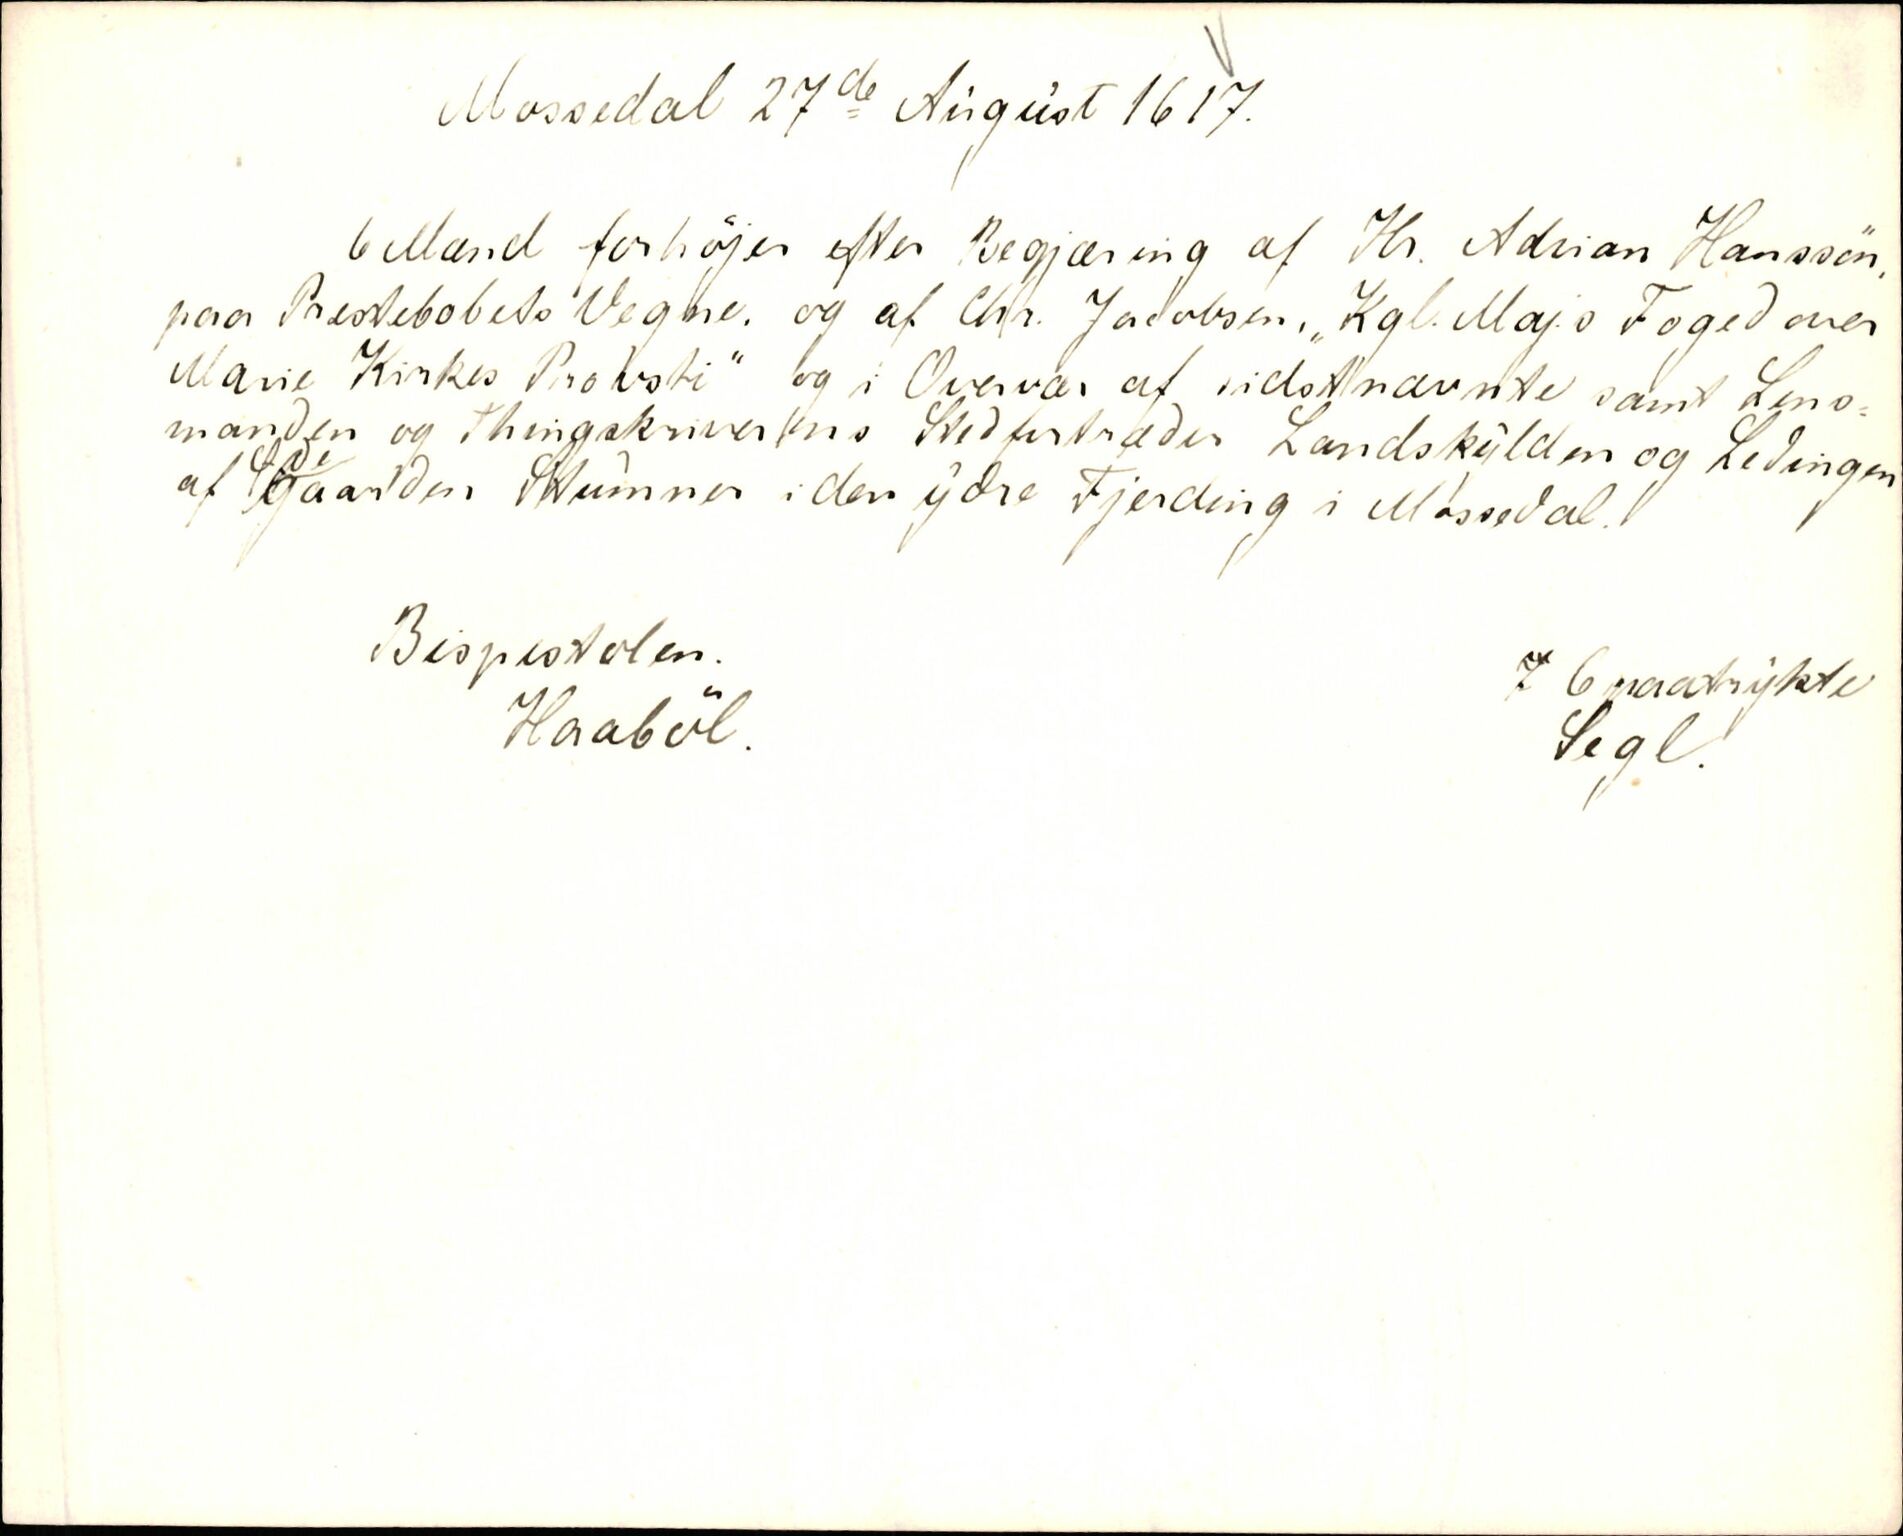 Mossedal 27de August 1617.
6 Mænd forhöjer efter Begjæring af Hr. Adrian Hanssön,
paa Prestebolets Vegne, og af Chr. Jacobsen, „Kgl. Maj.s Foged over
Marie Kirkes Provsti" og i Overvær af sidstnævnte samt Lens=
manden og Thingskriverens Stedfortræder Landskylden og Ledingen
af Ødegaarden Stumner i den ydre Fjerding i Mossedal.
Bispestolen.
Haaböl.
6 paatrykte
Segl.